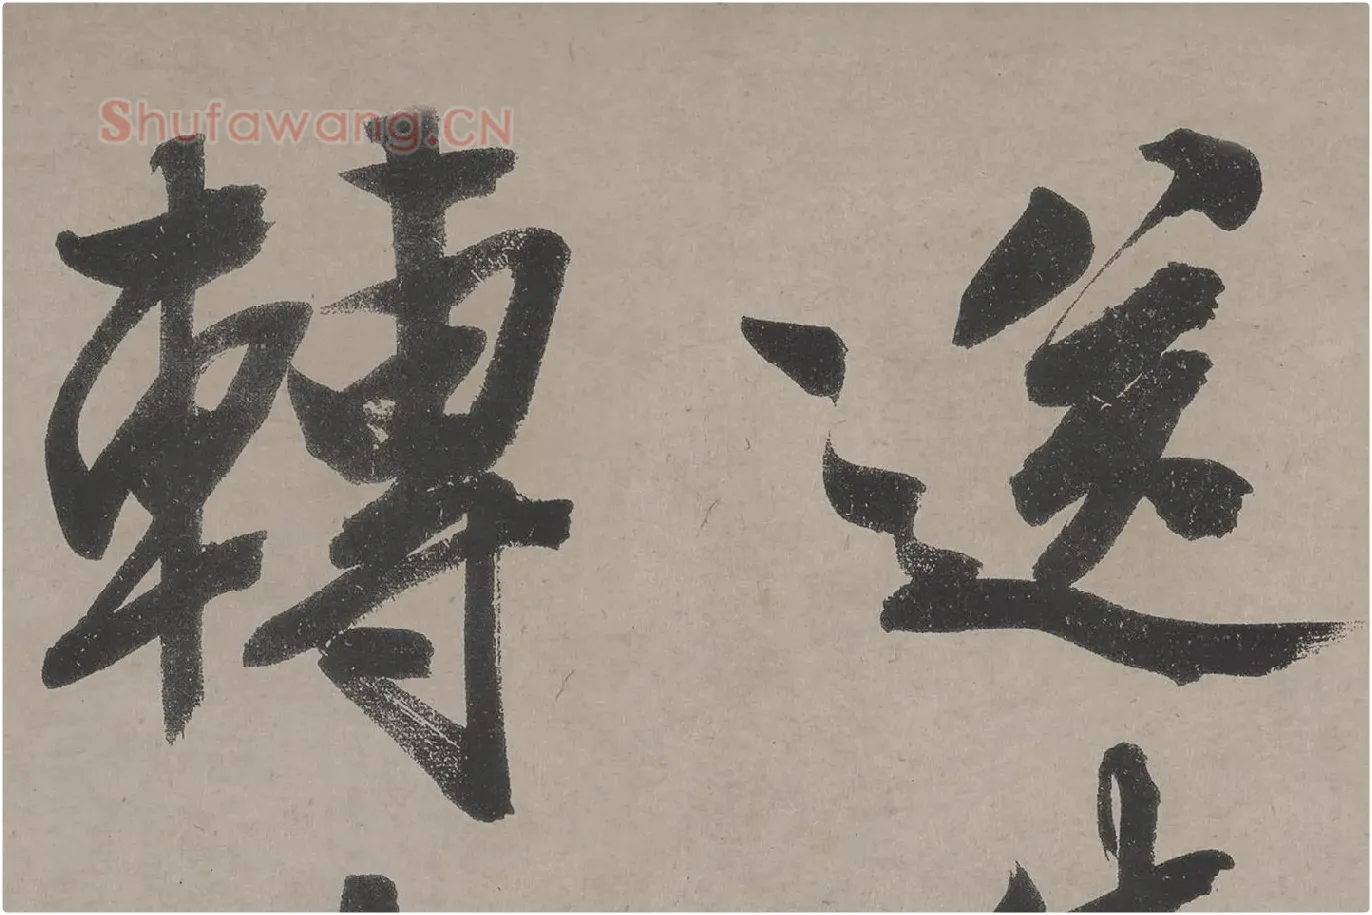 送
轉
Shufawang.CN